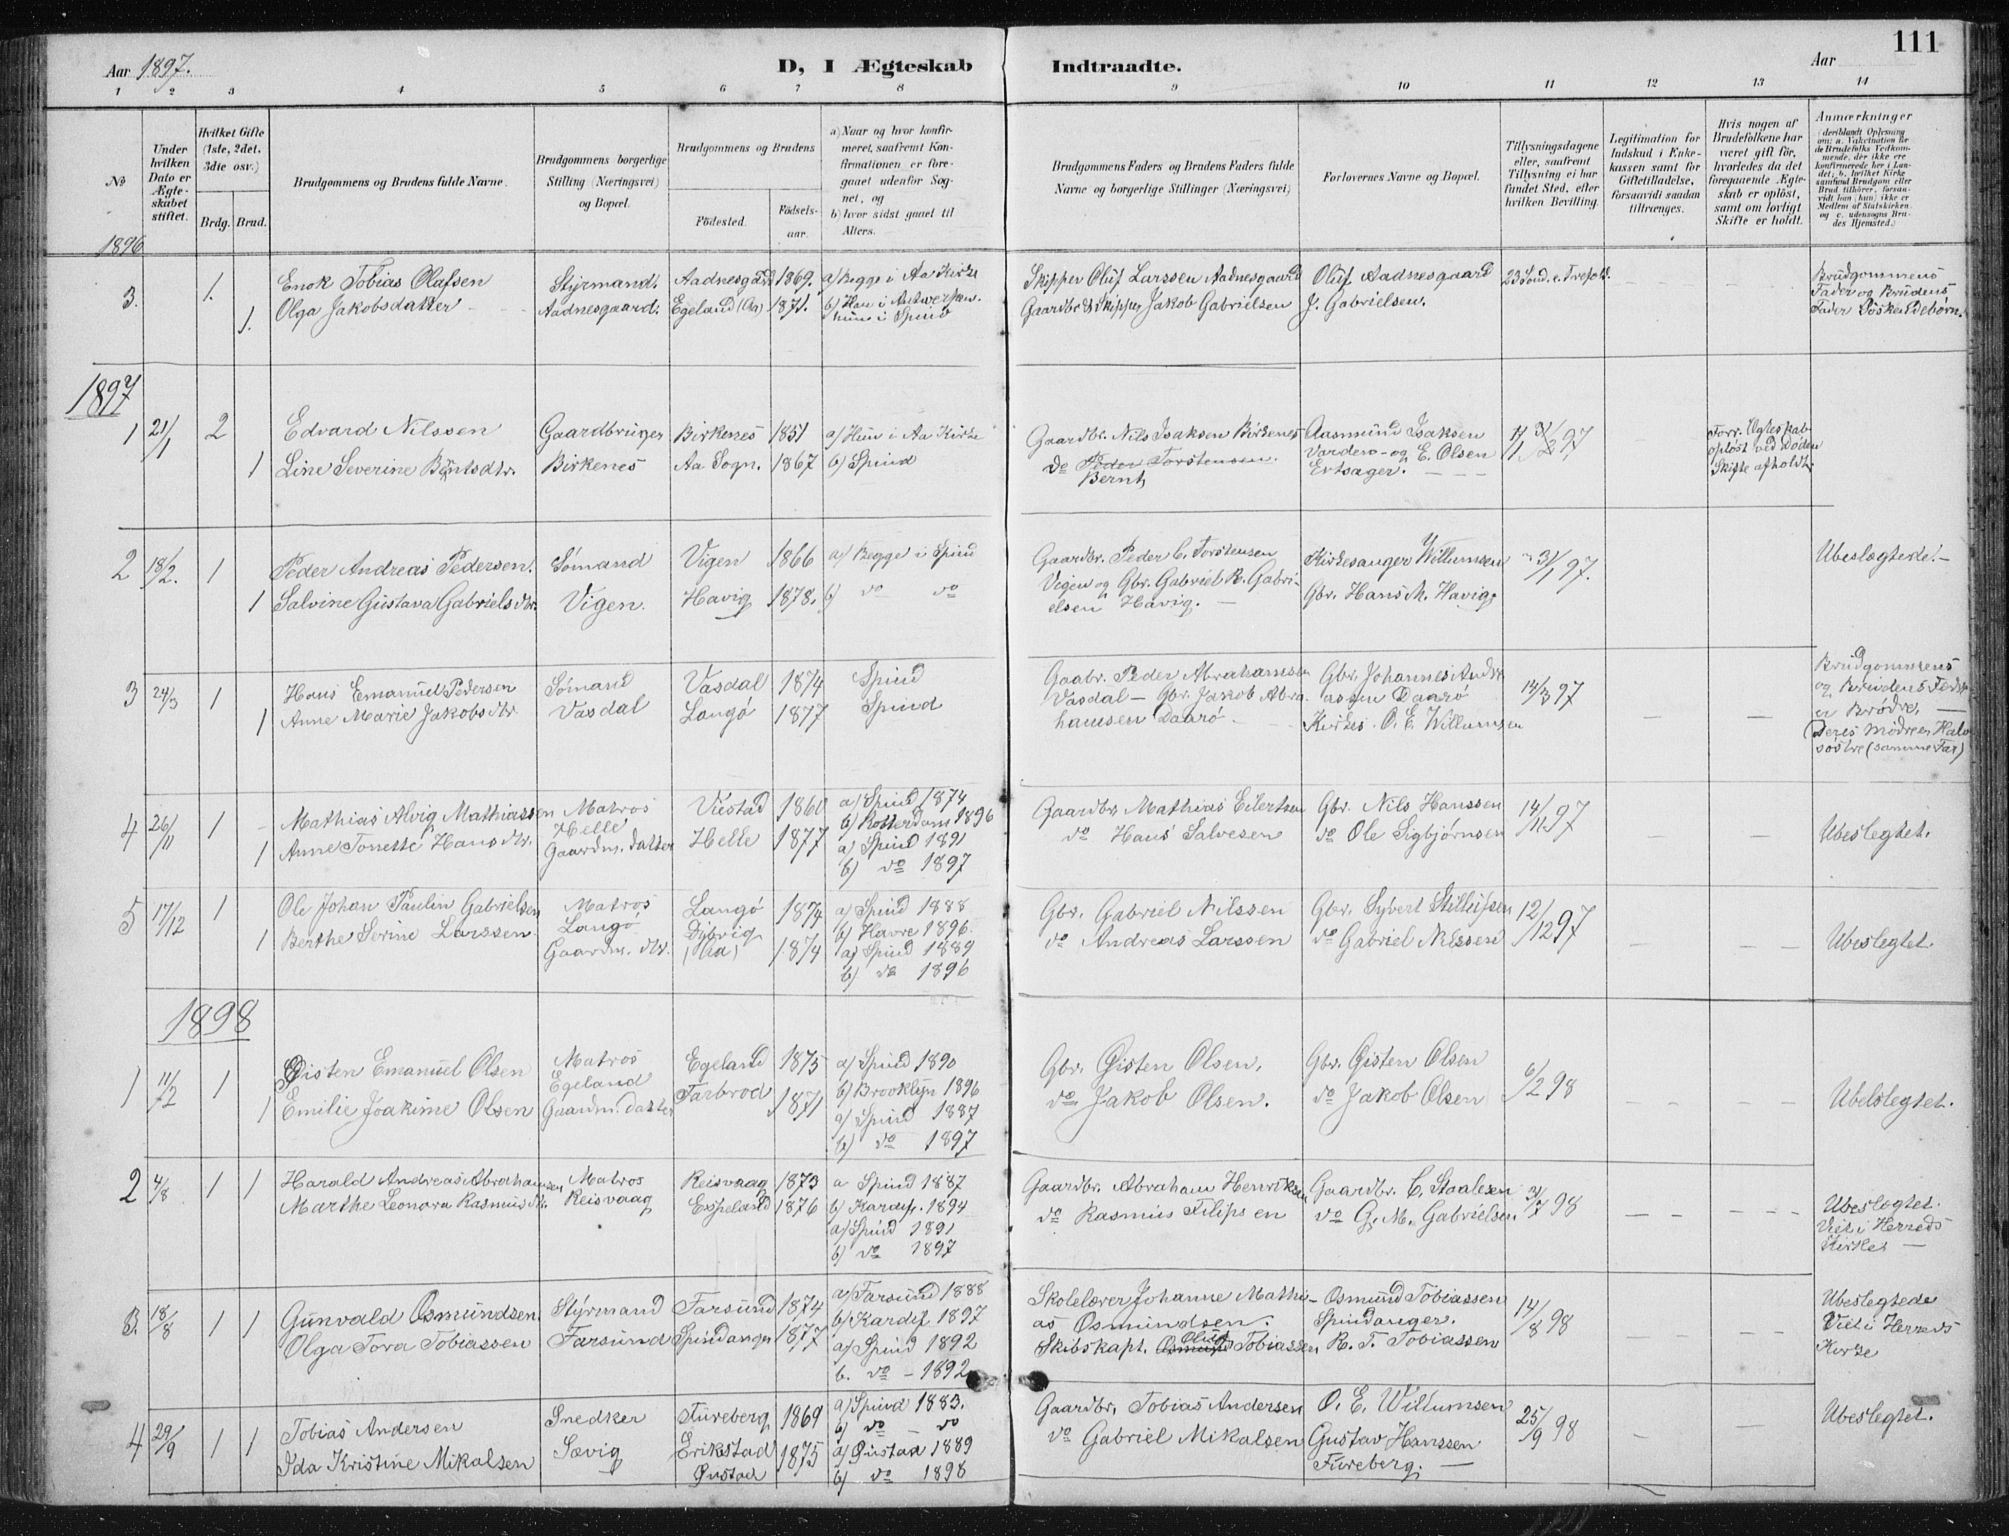 111
Aar 1897.
D, I Ægteskab Indtraadte.
Aar
1 2 3 4 5 6 7 8 9 10 11 12 13 14
No
Under hvilken Dato er Ægteskabet stiftet.
Hvilket Gifte (1ste, 2det, 3die osv.)
Brdg. Brud.
Brudgommens og Brudens fulde Navne.
Brudgommens borgerlige Stilling (Næringsvei) og Bopæl.
Brudgommens og Brudens
Födested.
Födsels-aar.
a) Naar og hvor konfirmeret, saafremt Konfirmationen er foregaaet udenfor Sognet, og
b) hvor sidst gaaet til Alters.
Brudgommens Faders og Brudens Faders fulde Navne og borgerlige Stillinger (Næringsvei)
Forlovernes Navne og Bopæl.
Tillysningsdagene eller, saafremt Tillysning ei har fundet Sted, efter hvilken Bevilling.
Legitimation for Indskud i Enkekassen samt for Giftetilladelse, forsaavidt saadan tiltrænges.
Hvis nogen af Brudefolkene har været gift för, hvorledes da det foregaaende Ægteskab er oplöst, samt om lovligt Skifte er holdt.
Anmærkninger
1896
3. 1. Enok Tobias Olafsen Styrmand. Aadnesgård 1869. a) Begge i Aa Kirke
1. Olga Jakobsdatter Aadnesgaard. Egeland (Aa) 1871. b) Han i Antwerpen. hun i Spind
Skipper Oluf Larssen Aadnesgaard Oluf Aadnesgaard
Gaardbr & Skipper Jakob Gabrielsen J. Gabrielsen.
23 Sønd. e. Trefold.
Brudgommens Fader og Brudens Fader Söskendebörn.
1897
1 21/1 2 Edvard Nilssen Gaardbruger Birkenes 1851 a) Hun i Aa Kirke
1 Line Severine Bentsdtr. Birkenes Aa Sogn. 1867 b) Spind
Gaardbr. Nils Isaksen Birkenes Aasmund Isaksen
do Peder Torstensen. Bernt
Vardero- og E. Olsen Ertsager.
Forr. Egteskab oplöst ved Döden Skifte afholdt.
2 18/2. 1 Peder Andreas Pedersen. Sømand Vigen 1866 a) Begge i Spind
1 Salvine Gustava Gabrielsdtr. Vigen. Havig 1878. b) do do
Gaardbr. Peder C. Torstensen Kirkesanger Willumsen 31/1 97.
Vigen og Gbr. Gabriel R. Gabrielsen Havig. Gbr. Hans M. Havig.
Ubeslægtede.
3 24/3 1 Hans Emanuel Pedersen Sömand Vasdal 1874 Spind
1 Anne Marie Jakobsdtr. Vasdal Langö 1877 Spind
Gaabr. Peder Abrahamssen Gbr. Johannes Andreassen Daarö 14/3 97
Vasdal - Gbr. Jakob Abrahamsen Daarö Kirkes. O. E. Willumsen
Brudgommens og Brudens Fedre er Brödre,
Deres Mödre er Halvsöstre (samme Far)
4 26/11 1 Mathias Alvig Mathiassen Matros Viestad 1860 a) Spind 1874
Helle b) Rotterdam 1896
1 Anne Tonette Hansdtr. Gaardm. datter Helle 1877 a) Spind 1891
b) do 1897
Gaardbr. Mathias Eilertsen Gbr. Nils Hanssen 14/11 97
do Hans Salvesen do Ole Sigbjørnsen
Ubeslegtet.
5 17/12 1 Ole Johan Paulin Gabrielsen Matros Langö 1874 a) Spind 1888
Langö b) Havre 1896.
1 Berthe Serine Larssen Gaardm. dtr. Dybvig (Aa) 1874 a) Spind 1889
b) do 1896
Gbr. Gabriel Nilssen Gbr. Syvert 12/12 97
do Andreas Larssen do Gabriel Nilssen
Ubeslegtet.
1898
1 11/2 1 Gisten Emanuel Olsen Matros Egeland 1875 a) Spind 1890
Egeland b) Brooklyn 1896
1 Emilie Joakime Olsen Gaardm. datter Farbrod 1871 a) Spind 1887
b) do 1897
Gbr. Gisten Olsen. Gbr. Gisten Olsen 6/2 98
do Jakob Olsen. do Jakob Olsen
Ubelslegtet.
2 4/8 1 1 Harald Andreas Abrahamsen Matros Reisvaag 1873 a Spind 1887
Marthe Leonora Rasmusdtr. Reisvaag Espeland 1876 b) Kardif. 1894
a) Spind 1891
b) do 1897
Gaardbr. Abraham Henriksen Gaardbr. C. Staalesen 31/7 98
do Rasmus Filipsen do G. M. Gabrielsen.
Ubeslegtet.
Viet i Herreds Kirke
3. 18/8 1 1 Gunvald Osmundsen. Styrmand Farsund 1874 a) Farsund 1888
b) Kardif 1897
Olga Tora Tobiassen Farsund Spindanger 1877 a) Spind 1892
b. do - 1892
Skolelærer Johanne Mathias Osmundsen. Osmund Tobiassen Spindanger. 14/8 98
Skibskapt. Oluf Tobiassen R. T. Tobiassen
Ubeslegtede
Viet i Herreds Kirke
4 29/9 1 1 Tobias Andersen Snedker Fureberg 1869 a) Spind 1883.
b) do do
Ida Kristine Mikalsen Sævig Erikstad 1875 a) Gustad 1889
b) do 1898
Gaardbr. Tobias Andersen O. E. Willumsen 25/9 98
do Gabriel Mikalsen Gustav Hanssen
Fureberg.
Ubeslegtet.